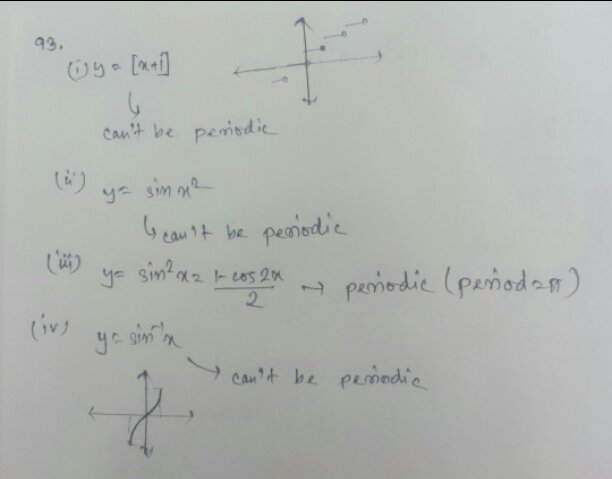 93.
(i) y = [x+1]
can't be periodic
(ii) y = sin x²
can't be periodic
(iii) y = sin²x = 1-cos2x / 2 → periodic (period=π)
(iv) y = sin⁻¹x
can't be periodic